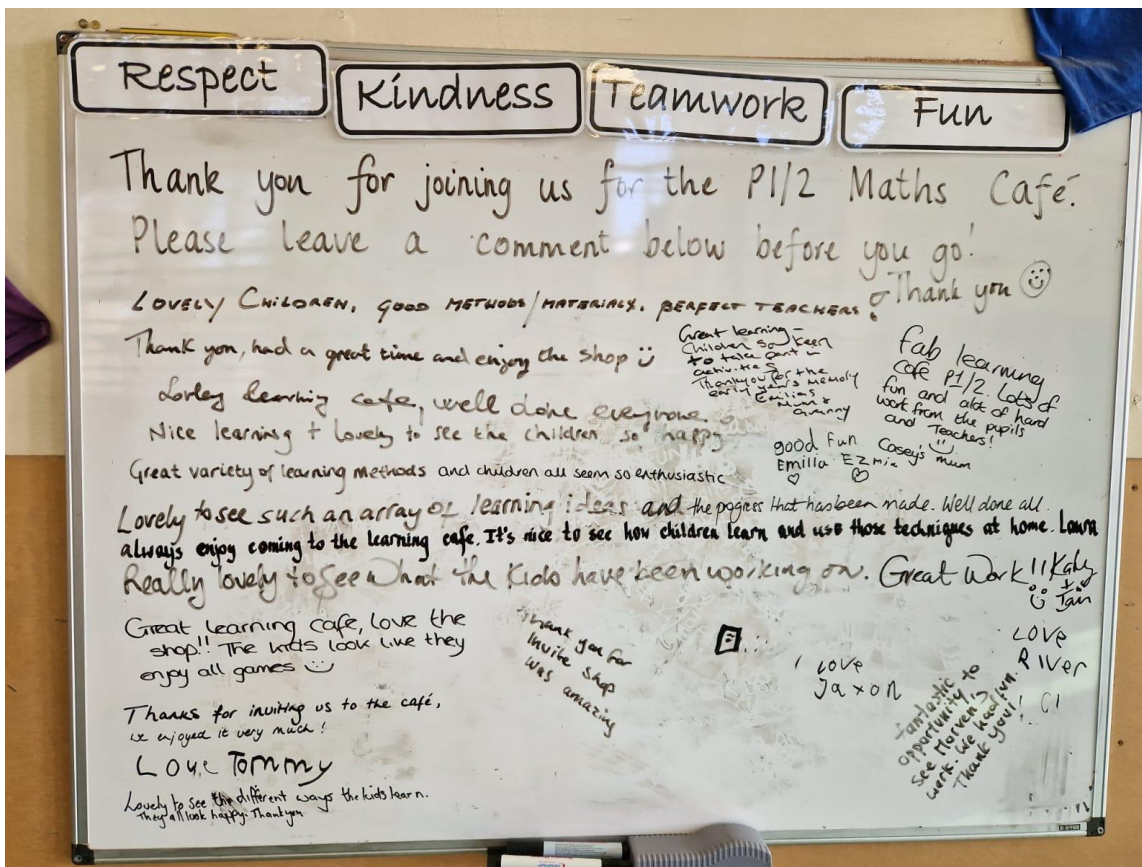 Respect
Kindness
Teamwork
Fun
Thank you for joining us for the P1/2 Maths Café.
Please leave a comment below before you go!
Thank you
LOVELY CHILDREN, GOOD METHODS/MATERIALX, PERFECT TEACHERS!
Thank you, had a great time and enjoy the shop
Lovley learning cafe, well done everyone
Nice learning + lovely to see the children so happy
Great variety of learning methods and children all seem so enthusiastic
Great learning -
Children so keen
to take part in
activities
Thankyou for the
early years memory
Emilias
Mum &
Granny
fab learning
café P1/2. Lots of
fun and alot of hard
work from the pupils
and Teachers!
Casey's mum
good Fun
Emilla Ezmia
Lovely to see such an array of learning ideas and the progress that has been made. Well done all.
always enjoy coming to the learning cafe. It's nice to see how children learn and use those techniques at home. Laura
Really lovely to see what the kids have been working on. Great Work!! Katy
+ Iain
Great learning cafe, love the
shop!! The kids look like they
enjoy all games
Thank you for
Invite shop
was amazing
I love
Jaxon
LOVE
RIVER
fantastic
opportunity to
see Marven's
work. We had fun.
Thank you!
Thanks for inviting us to the café,
we enjoyed it very much!
Love Tommy
Lovely to see the different ways the kids learn.
They all look happy. Thankyou